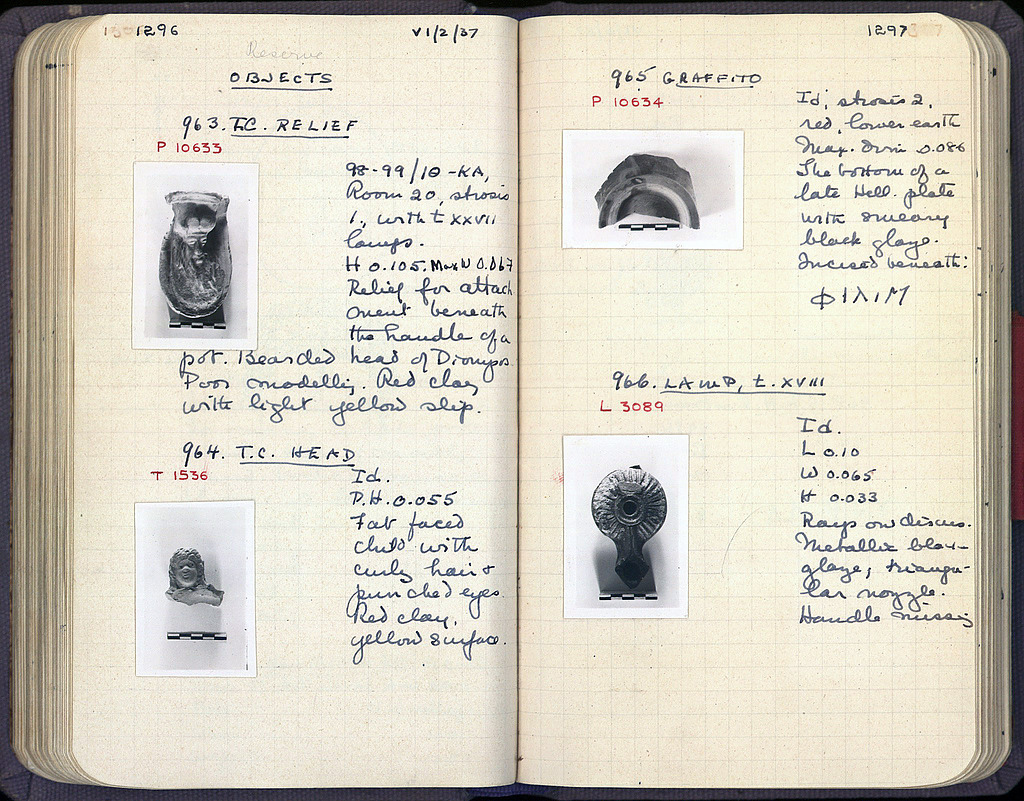 1296
VI/2/37
Reserve
OBJECTS
963. T.C. RELIEF
P 10633
98-99/10-KA,
Room 20, strosis
1, with t XXVII
lamps.
H 0.105. Max W 0.067
Relief for attach
ment beneath
the handle of a
pot. Bearded head of Dionysos
Poor modelling. Red clay
with light yellow slip.
964. T.C. HEAD
T 1536
Id.
P.H. 0.055
Fat faced
child with
curly hair +
punched eyes.
Red clay,
yellow surface.
1297
965 GRAFFITO
P 10634
Id, strosis 2,
red, lower earth
Max. Dim 0.086
The bottom of a
late Hell. plate
with smeary
black glaze.
Incised beneath:
ΦΙΛΙΜ
966. LAMP, t. XVIII
L 3089
Id.
L 0.10
W 0.065
H 0.033
Rays on discus.
Metallic black
glaze, triangu-
lar nozzle.
Handle missing